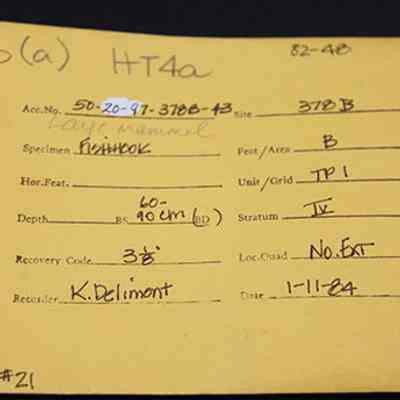 (a) HT4a 82-48
Acc.No. 50-20-97-3788-43 Site 378 B
Large mammal
Specimen Fishhook Feat/Area B
Hor.Feat. Unit/Grid TP 1
Depth 60-90 cm BS (BD) Stratum IV
Recovery Code 3 1/8" Loc.Quad No.Ext
Recorder K.Delimont Date 1-11-84
#21